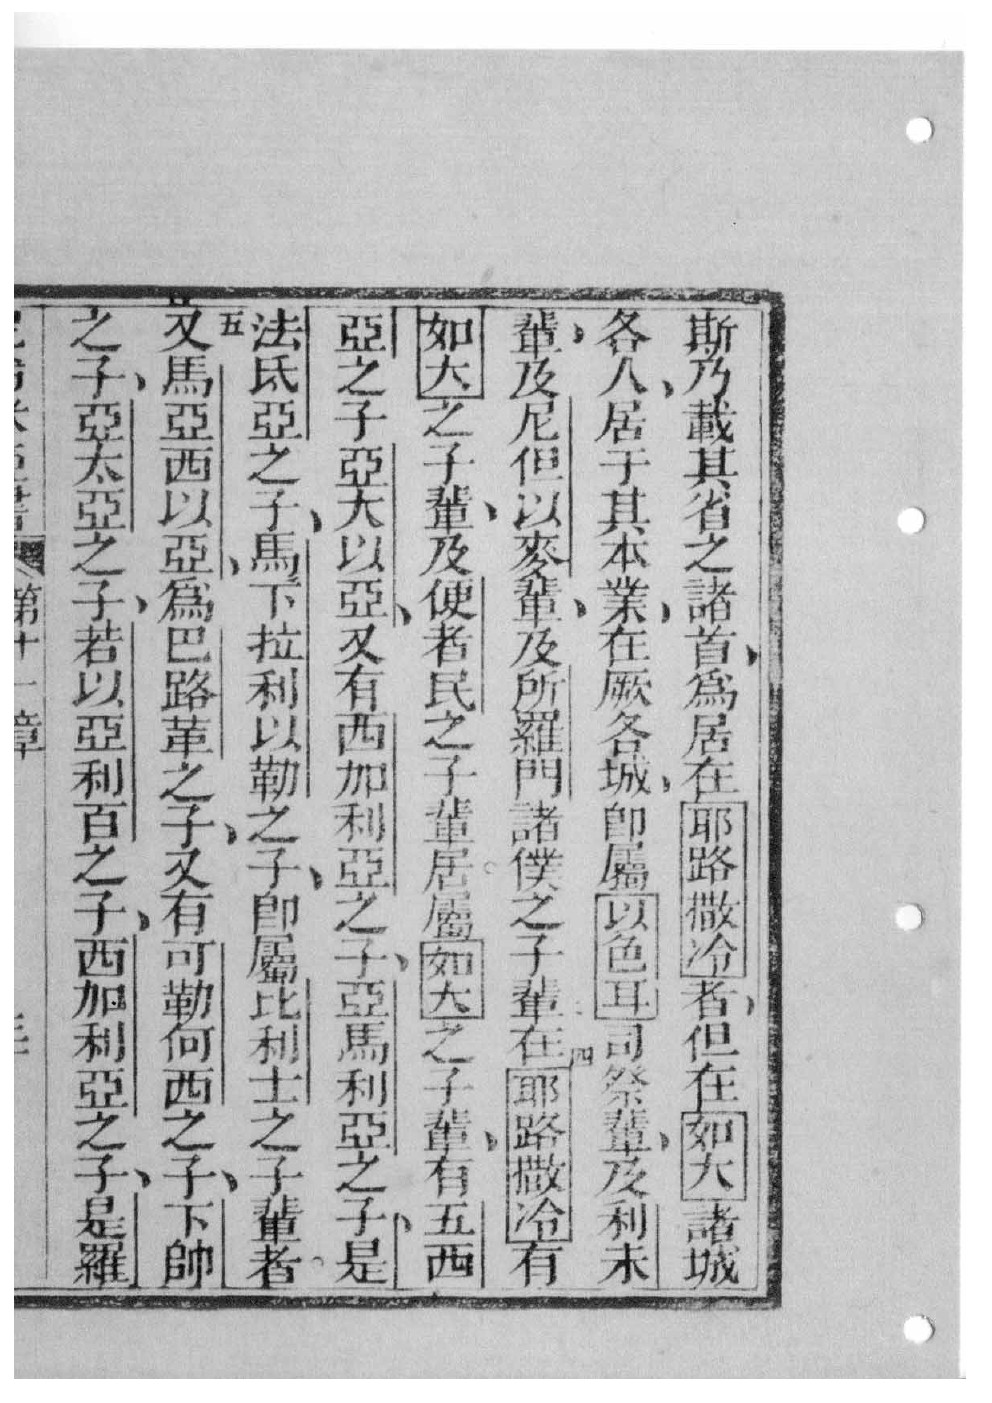 斯乃載其省之諸首、爲居在耶路撒冷者、但在如大諸城
各人、居于其本業、在厥各城、卽屬以色耳司祭輩、及利未
輩、及尼但以麥輩、及所羅門諸僕之子輩。四在耶路撒冷有
如大之子輩、及便者民之子輩居。屬如大之子輩、有五西
亞之子亞大以亞、又有西加利亞之子、亞馬利亞之子、是
法氐亞之子、馬下拉利以勒之子、卽屬比利士之子輩者。
五又馬亞西以亞、爲巴路革之子、又有可勒何西之子、下帥
之子、亞太亞之子、若以亞利百之子、西加利亞之子、是羅
第十一章